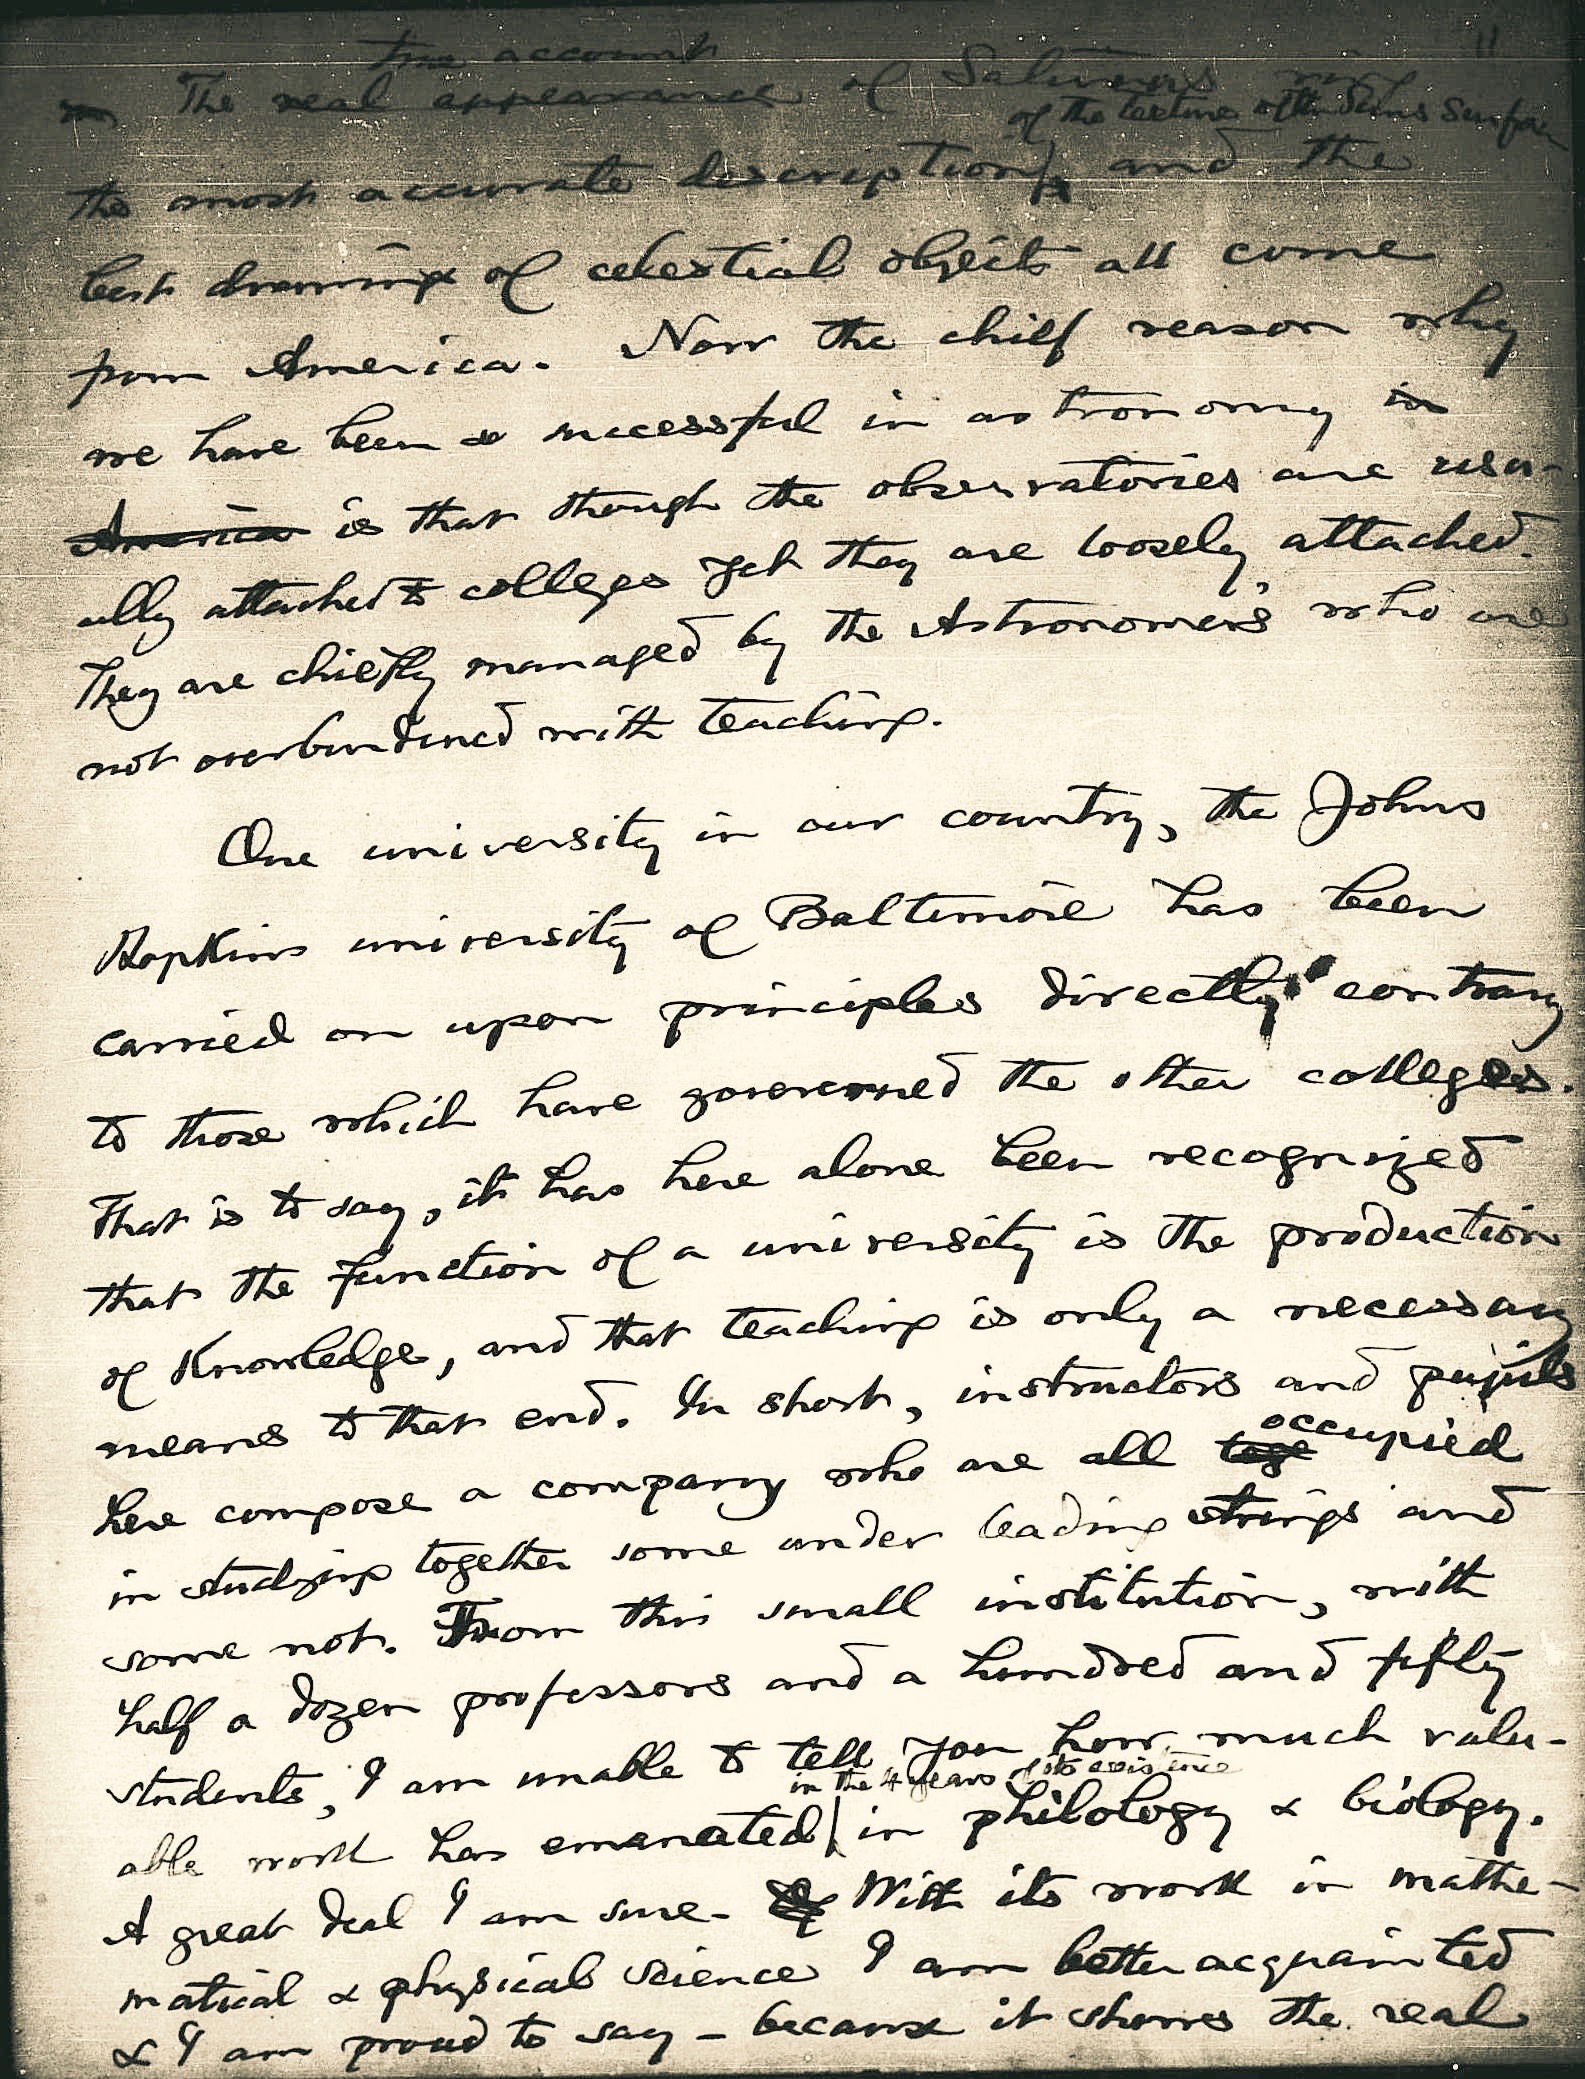 11
true account
The real appearance of Saturn's ring
of the texture of the Sun's surface
the most accurate description, and the
best drawings of celestial objects all come
from America. Now the chief reason why
we have been so successful in astronomy in
America is that though the observatories are usu-
ally attached to colleges yet they are loosely attached.
They are chiefly managed by the Astronomers, who are
not overburdened with teaching.
One university in our country, the Johns
Hopkins university of Baltimore has been
carried on upon principles directly contrary
to those which have governed the other colleges.
That is to say, it has here alone been recognized
that the function of a university is the production
of knowledge, and that teaching is only a necessary
means to that end. In short, instructors and pupils
here compose a company who are all toge occupied
in studying together some under leading strings and
some not. From this small institution, with
half a dozen professors and a hundred and fifty
students, I am unable to tell you how much valu-
in the 4 years of its existence
able work has emanated in philology & biology.
A great deal I am sure. With its work in mathe-
matical & physical science I am better acquainted
& I am proud to say – because it shows the real